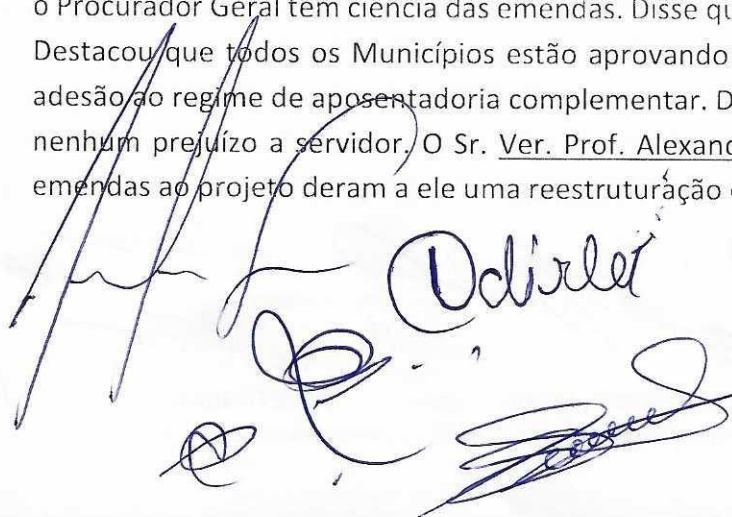 o Procurador Geral tem ciência das emendas. Disse qu
Destacou que todos os Municípios estão aprovando
adesão ao regime de aposentadoria complementar. D
nenhum prejuízo a servidor. O Sr. Ver. Prof. Alexand
emendas ao projeto deram a ele uma reestruturação
Odirlei